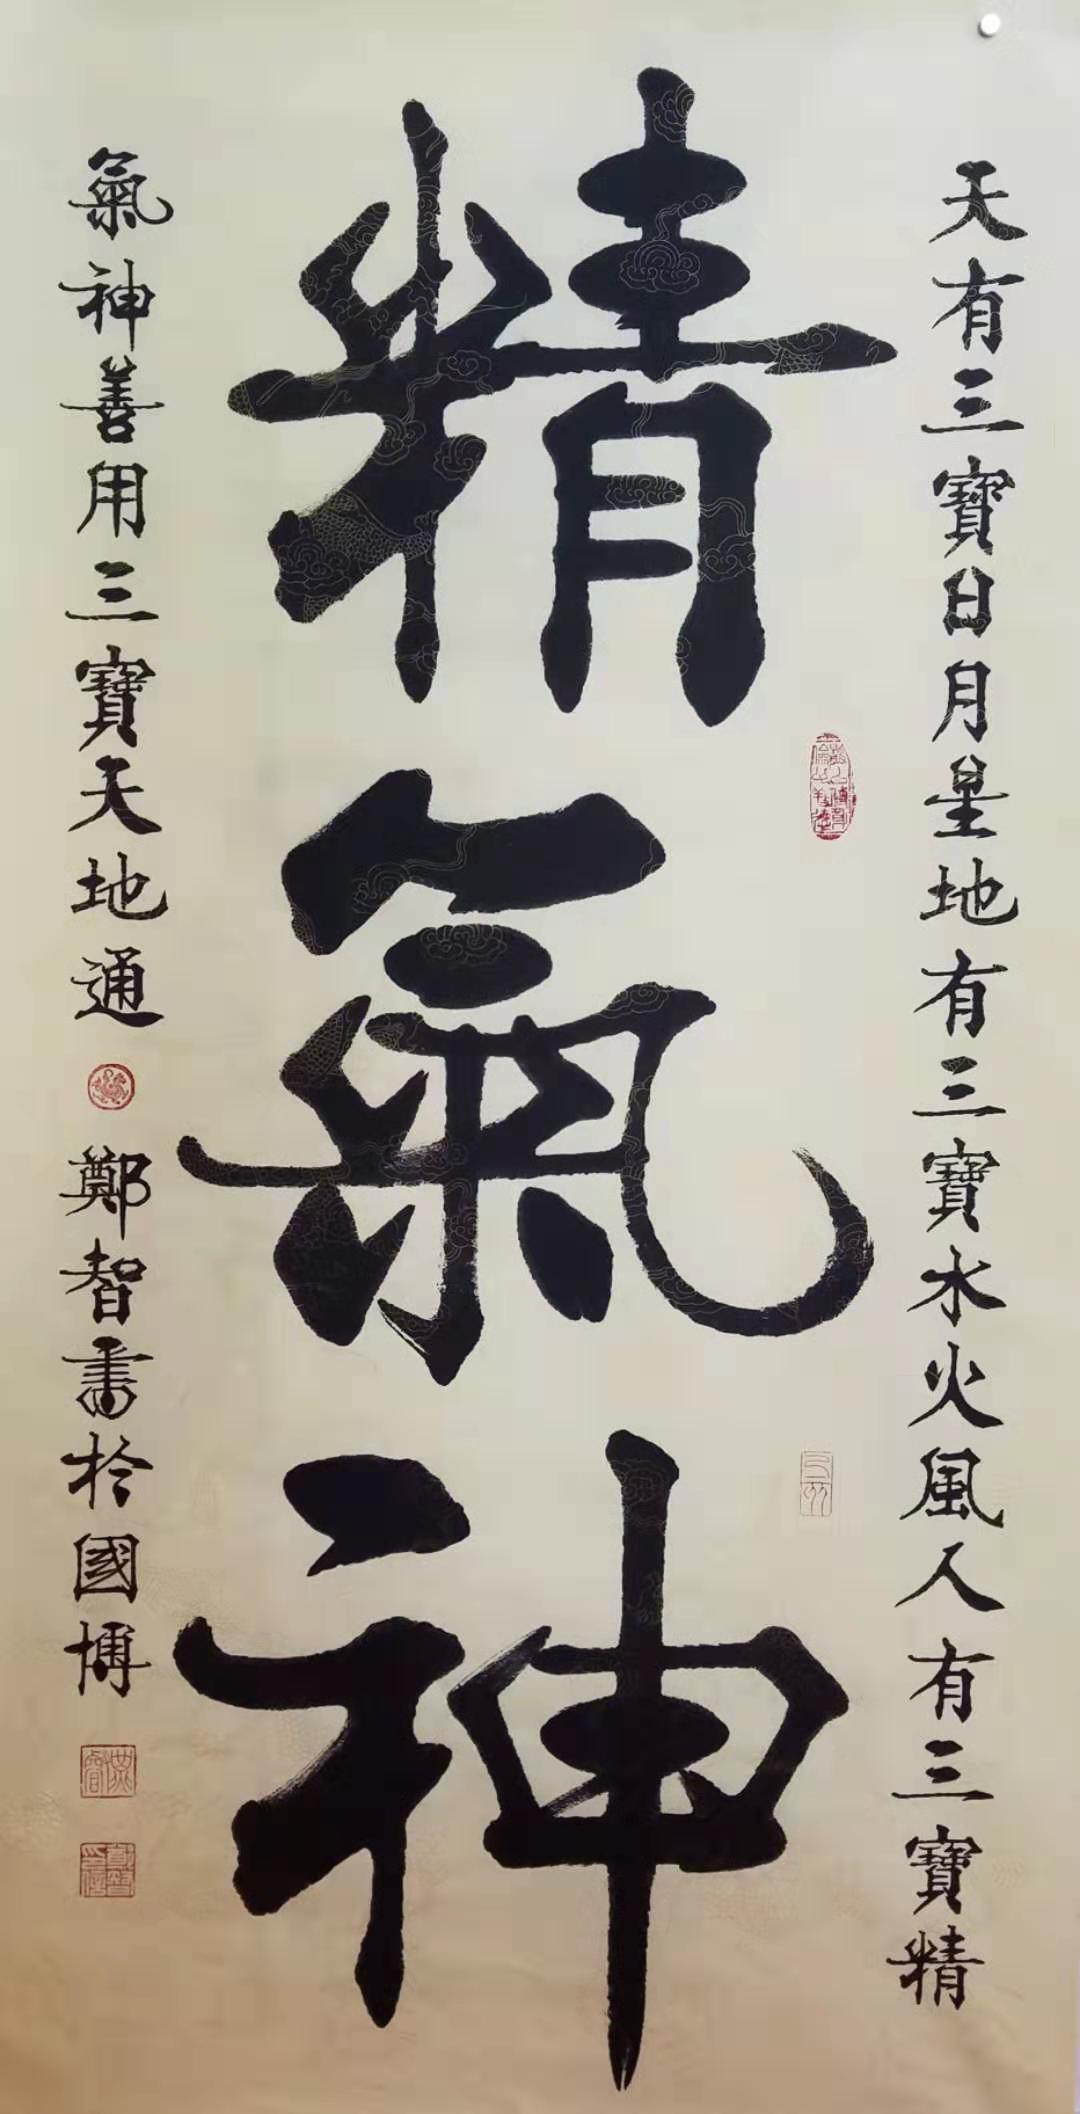 天有三寶日月星地有三寶水火風人有三寶精
精氣神
氣神善用三寶天地通
鄭智書於國博